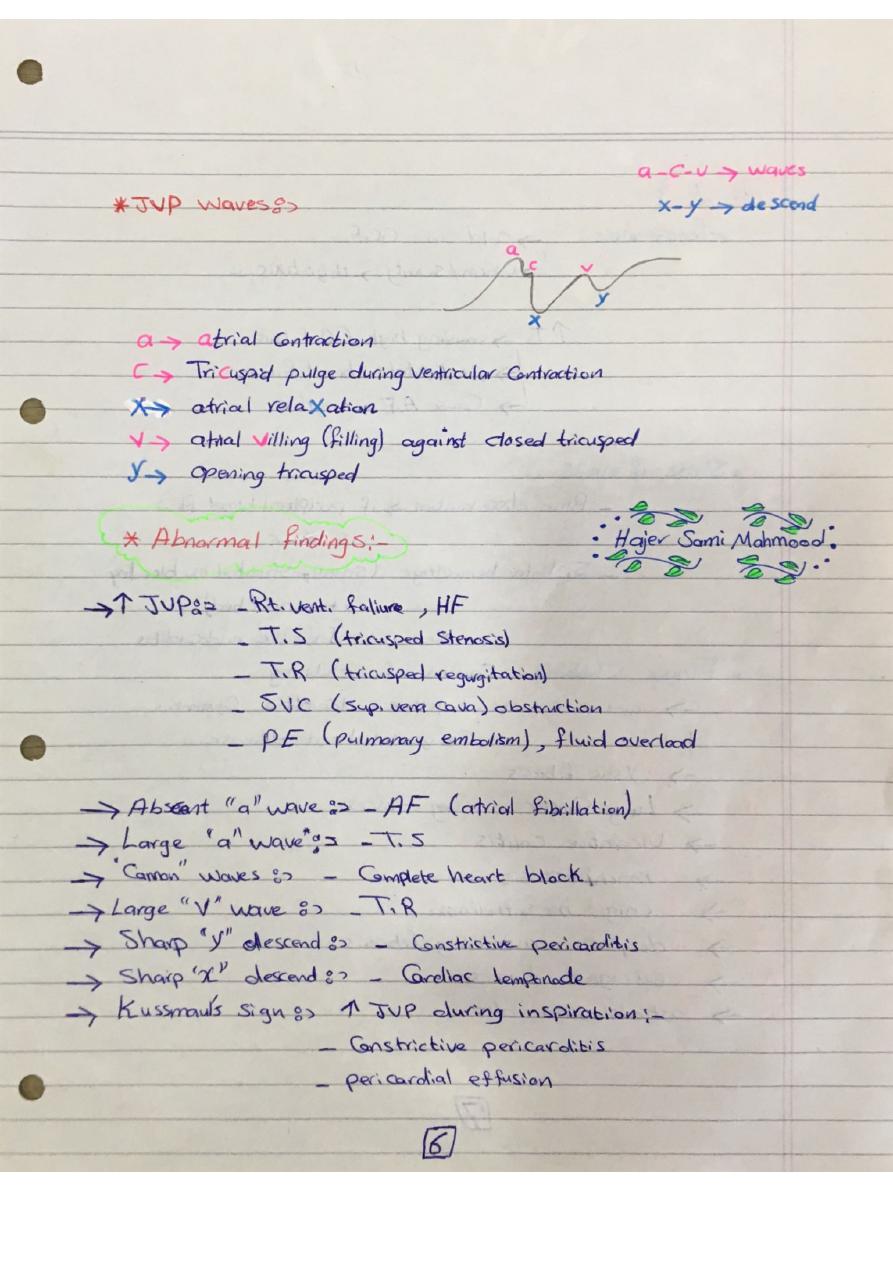 a-C-v → waves
* JVP waves:-
x-y → descend
a
c
v
y
x
a → atrial Contraction
C → Tricuspid pulge during ventricular Contraction
X → atrial relaXation
V → atrial Villing (filling) against closed tricusped
Y → opening tricusped
* Abnormal findings:-
Hajer Sami Mahmood
→ ↑ JVP:- - Rt. vent. faliure , HF
- T.S (tricusped stenosis)
- T.R (tricusped regurgitation)
- SVC (sup. vena cava) obstruction
- PE (pulmonary embolism) , fluid overload
→ Absent "a" wave :- - AF (atrial fibrillation)
→ Large "a" wave :- - T.S
→ "Cannon" waves :- - Complete heart block.
→ Large "V" wave :- - T.R
→ Sharp "y" descend :- - Constrictive pericarditis
→ Sharp "x" descend :- - Cardiac temponade
→ Kussmaul's sign :- ↑ JVP during inspiration :-
- Constrictive pericarditis
- pericardial effusion
6